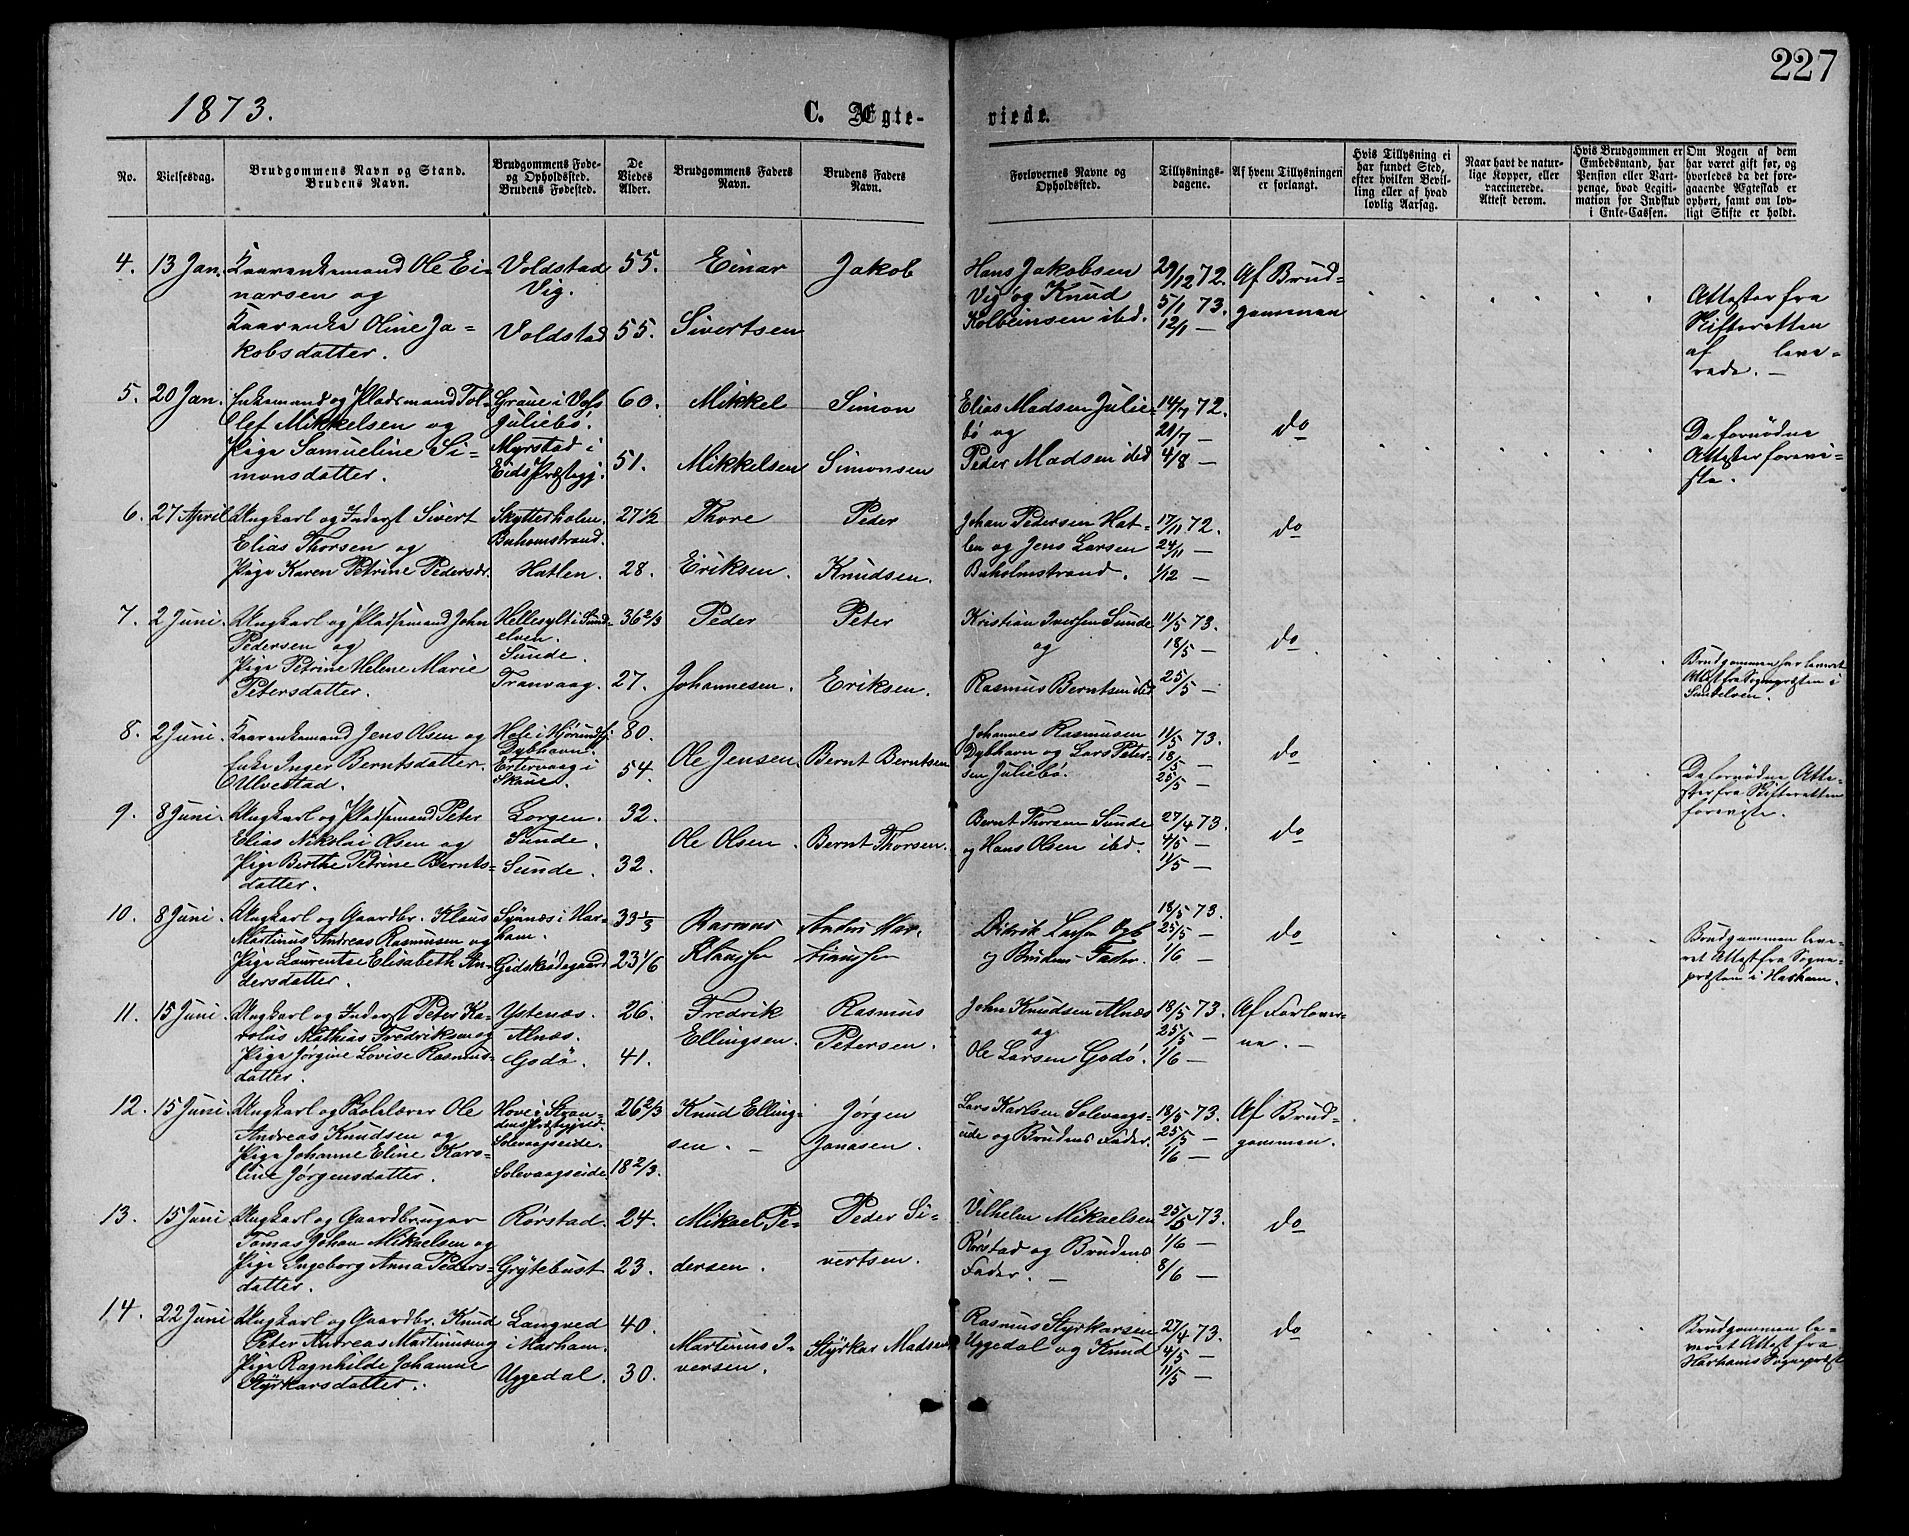 227
1873.
C. Ægte-
viede.
No.
Vielsesdag.
Brudgommens Navn og Stand.
Brudens Navn.
Brudgommens Føde-
og Opholdssted.
Brudens Fødested.
De
Viedes
Alder.
Brudgommens Faders
Navn.
Brudens Faders
Navn.
Forlovernes Navne og
Opholdssted.
Tillysnings-
dagene.
Af hvem Tillysningen
er forlangt.
Hvis Tillysning ei
har fundet Sted,
efter hvilken Bevil-
ling eller af hvad
lovlig Aarsag.
Naar havt de natur-
lige Kopper, eller
vaccinerede.
Attest derom.
Hvis Brudgommen er
Embedsmand, har
Pension eller Vart-
penge, hvad Legiti-
mation for Indskud
i Enke-Cassen.
Om Nogen af dem
har været gift før, og
hvorledes da det fore-
gaaende Ægteskab er
ophørt, samt om lov-
ligt Skifte er holdt.
4. 13 Jan.
Kaarenkemand Ole Ei-
narsen og
Kaarenke Oline Ja-
kobsdatter.
Voldstad
Vig.
Voldstad
55.
55.
Einar
Sivertsen
Jakob
Hans Jakobsen
Vig og Knud
Kolbeinsen ibd.
29/12 72.
5/1 73.
12/1 —
Af Brud-
gommen
Attester fra
Skifteretten
af leve-
rede. —
5. 20 Jan.
Enkemand og Pladsmand Tol-
lef Mikkelsen og
Pige Samueline Si-
monsdatter.
Graue i Vofs
Juliebø.
Myrstad i
Eids Præstegj.
60.
51.
Mikkel
Mikkelsen
Simon
Simonsen
Elias Madsen Julie-
bø og
Peder Madsen ibd
14/7 72.
21/7 —
4/8 —
do
De fornødne
Attester forevi-
ste.
6. 27 April
Ungkarl og Inderst Sivert
Elias Thorsen og
Pige Karen Petrine Pedersdr.
Skytterholm.
Buholmstrand.
Hatlen.
27 1/2
28.
Thore
Eriksen.
Peder
Knudsen.
Johan Pedersen Hat-
len og Jens Larsen
Buholmstrand.
17/11 72.
24/11 —
1/12 —
do
7. 2 Juni.
Ungkarl og Pladsemand John
Pedersen og
Pige Petrine Helene Marie
Petersdatter.
Hellesylt i Sund-
elven.
Sunde.
Tranvaag.
36 2/3
27.
Peder
Johannesen.
Peter
Eriksen.
Kristian Iversen Sunde
og
Rasmus Berntsen ibd
11/5 73.
18/5 —
25/5 —
do
Brudgommen har leveret
Attest fra Sognepræsten i
Sundelven.
8. 2 Juni.
Kaarenkemand Jens Olsen og
Enke Inger Berntsdatter
Ulvestad.
Hole i Hjørundfj.
Dybhavn.
Ertervaag i
80.
54.
Ole Jensen.
Bernt Berntsen
Johannes Rasmusen
Dybhavn og Lars Peter-
sen Juliebø.
11/5 73.
18/5 —
25/5 —
do
De fornødne Atte-
ster fra Skifteretten
foreviste.
9. 8 Juni.
Ungkarl og Pladsemand Peter
Elias Nikolai Olsen og
Pige Berthe Petrine Bernts-
datter.
Lorgen.
Sunde.
Sunde.
32.
32.
Ole Olsen.
Bernt Thorsen.
Bernt Thorsen Sunde
og Hans Olsen ibd.
27/4 73.
4/5 —
11/5 —
do
10. 8 Juni.
Ungkarl og Gaardbr. Klaus
Martinus Andreas Rasmusen og
Pige Laurentse Elisabeth An-
dersdatter.
Synnes i Har-
ham.
Gidskeødegaard
33 1/3
23 1/6
Rasmus
Klausen
Anders Mar-
tinussen
Didrik
og Brudens Fader.
18/5 73.
25/5 —
1/6 —
do
Brudgommen leve-
ret Attest fra Sogne-
præsten i Harham.
11. 15 Juni.
Ungkarl og Inderst Peter Ka-
rolus Mathias Fredriksen og
Pige Jørgine Lovise Rasmus-
datter.
Ystenæs.
Alnæs.
Godø.
26.
41.
Fredrik
Ellingsen.
Rasmus
Petersen.
John Knudsen Alnæs
og
Ole Larsen Godø.
18/5 73.
25/5 —
1/6 —
Af Forlover-
ne. —
12. 15 Juni
Ungkarl og Skolelærer Ole
Andreas Knudsen og
Pige Johanne Eline Karo-
line Jørgensdatter.
Hove i Stran-
dens Præstegjed.
Solevaagseide.
Solevaagseide
26 2/3
18 2/3.
Knud Elling-
sen. —
Jørgen
Jonasen.
Lars Karlsen Solevaags-
eide og Brudens Fader.
18/5 73.
25/5 —
1/6 —
Af Brud-
gommen.
13. 15 Juni
Ungkarl og Gaardbruger
Tomas Johan Mikaelsen og
Pige Ingeborg Anna Peders-
datter.
Rørstad.
Grytebust
24.
23.
Mikael Pe-
dersen.
Peder Si-
vertsen.
Vilhelm Mikaelsen
Rørstad og Brudens
Fader. —
25/5 73.
1/6 —
8/6 —
do
14. 22 Juni
Ungkarl og Gaardbr. Knud
Peter Andreas Martinusen og
Pige Ragnhilde Johanne
Styrkarsdatter.
Langved
i Harham.
Uggedal.
40.
30.
Martinus I-
versen.
Styrkar Madsen
Rasmus Styrkarsen
Uggedal og Knud
27/4 73.
4/5 —
11/5 —
do
Brudgommen le-
veret Attest fra
Harhams Sognepræst